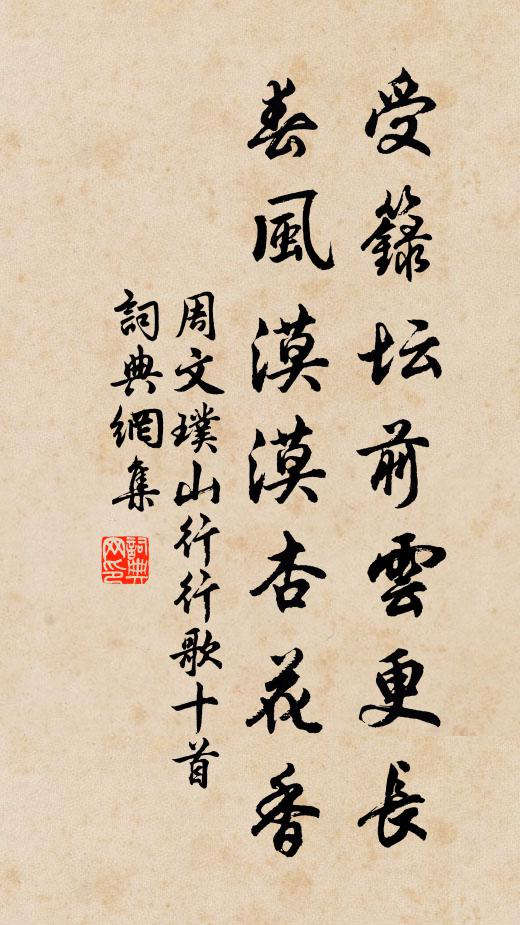 受籙坛前雲更長
春風漠漠杏花香
周文璞山行行歌十首
詞典網集
詞典網印